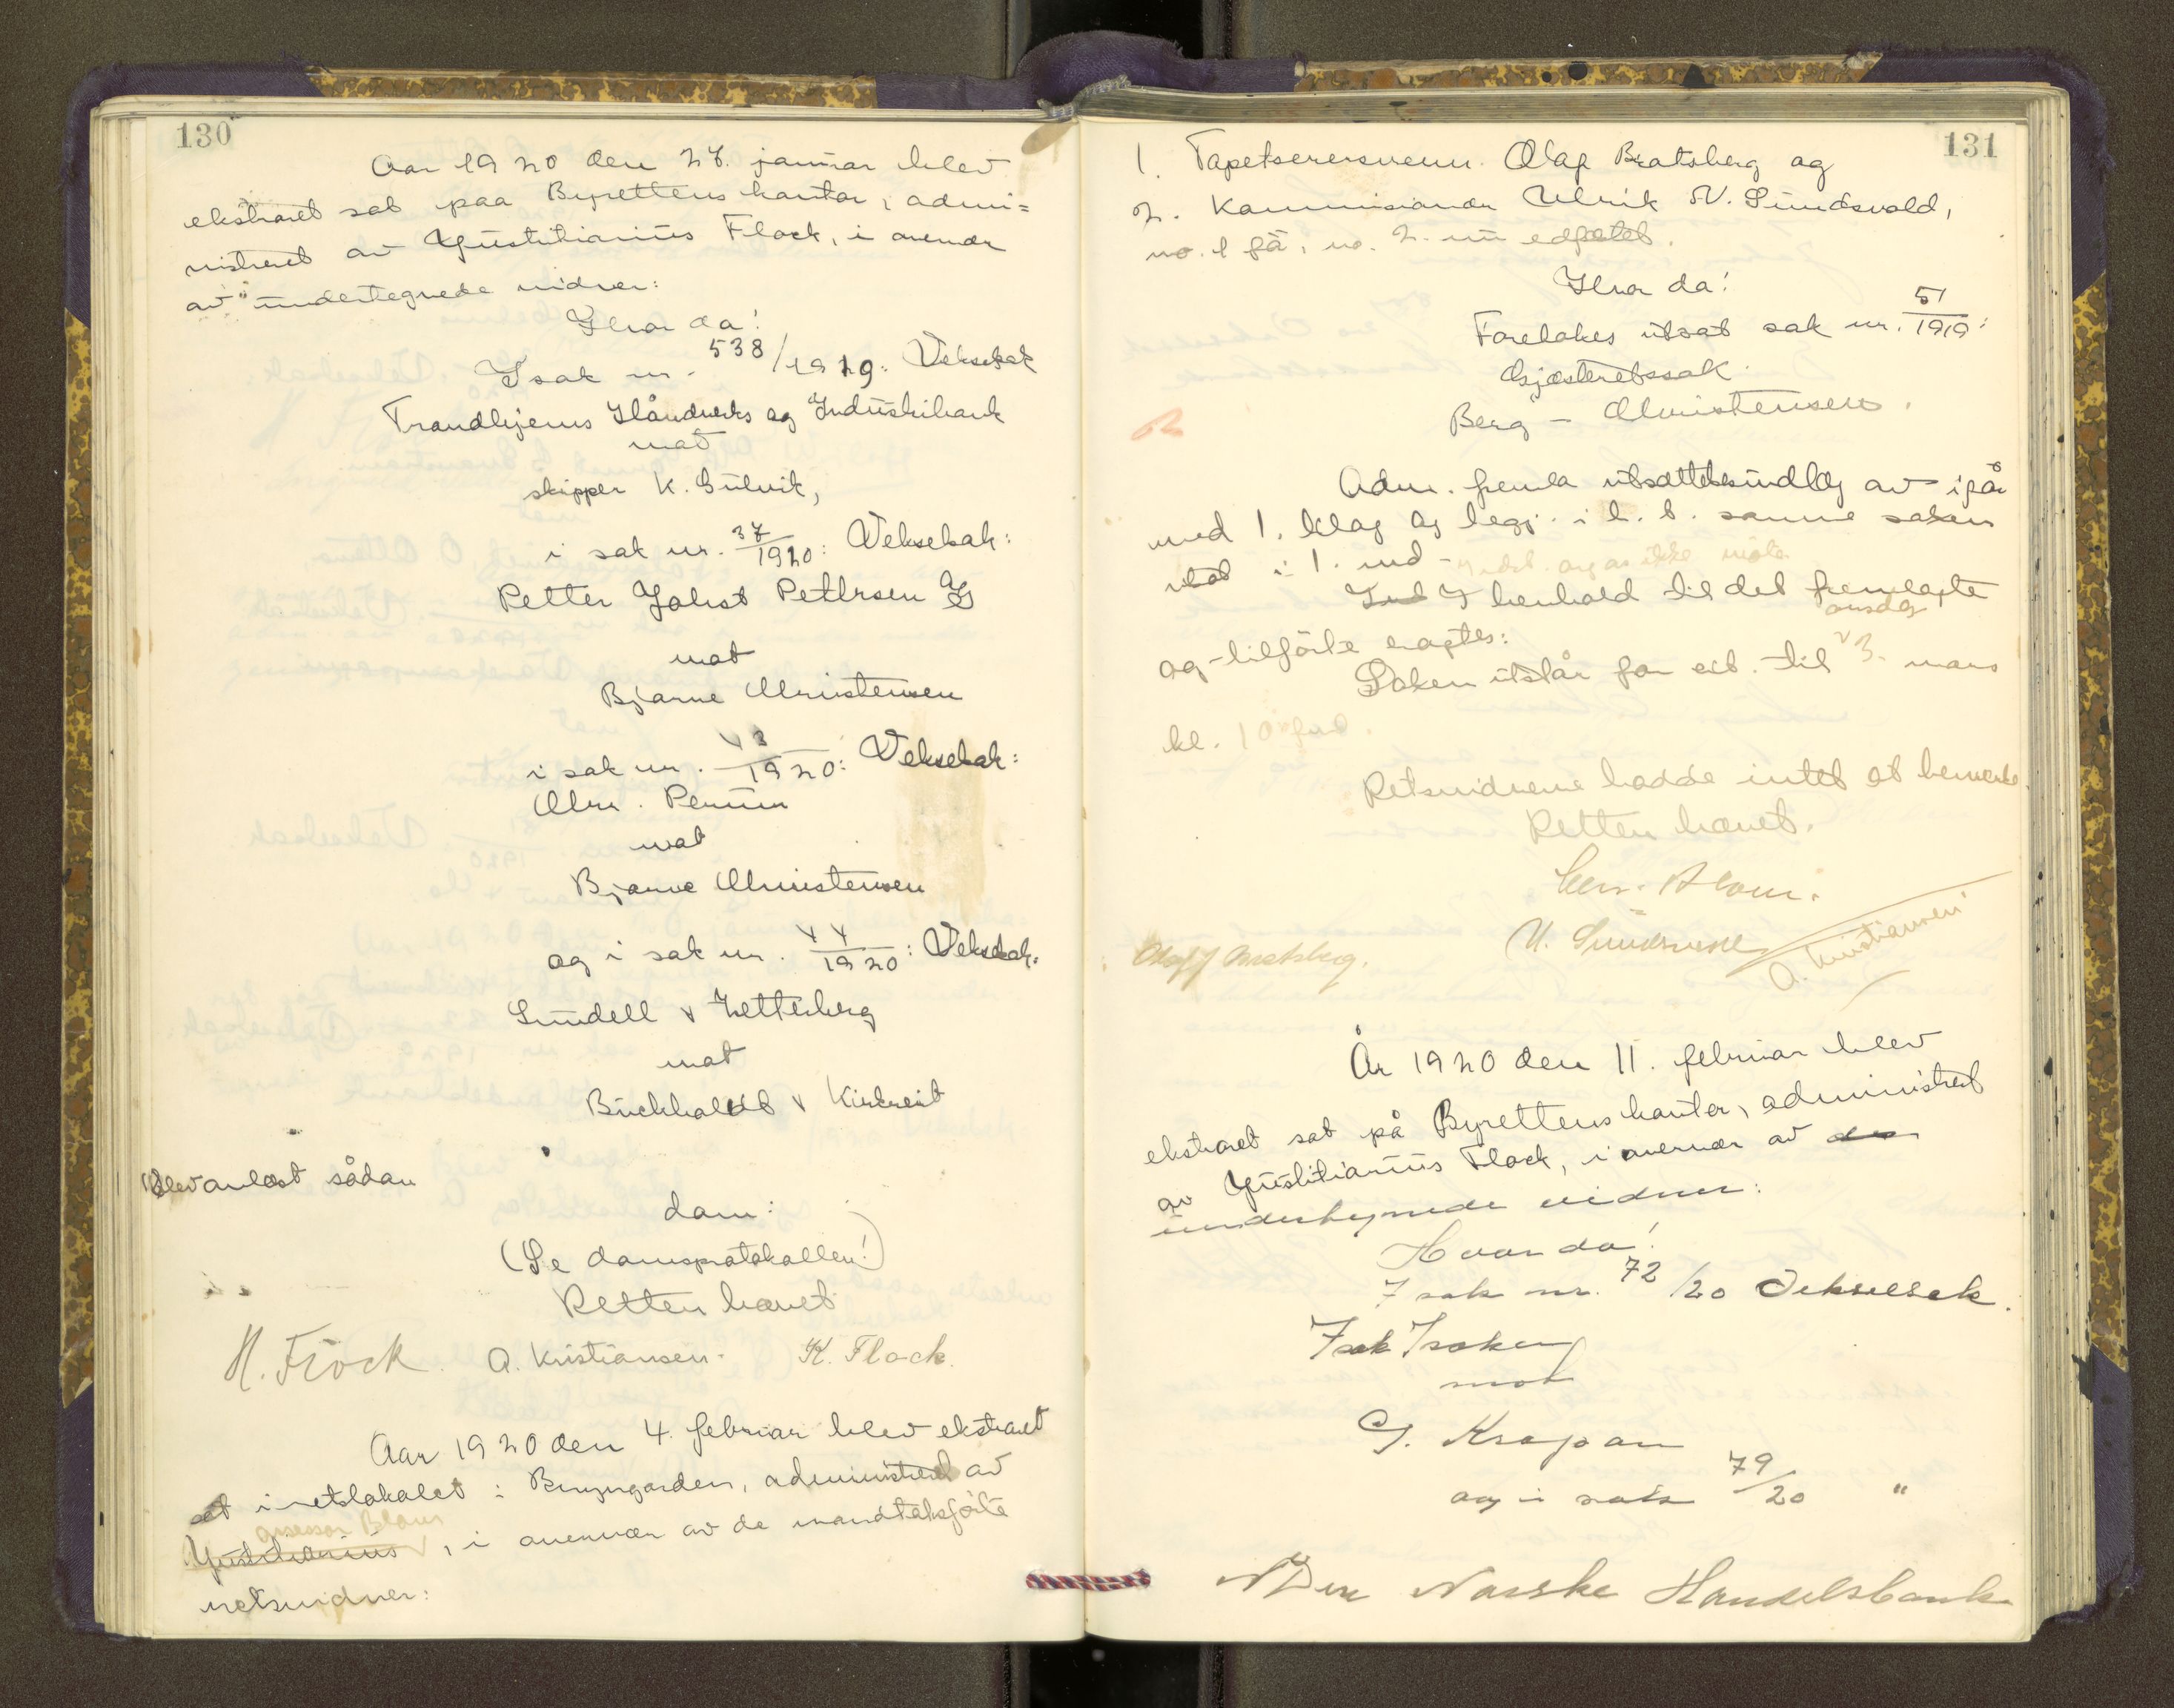 130
Aar 1920 den 28. januar blev
ekstraret sat paa Byrettens kontor, admi=
nistreret av Justitiarius Flock, i overvær
av undertegnede vidner:
Hvor da!
I sak nr. 538/1919: Vekselsak
Trondhjems Håndverks og Industribank
mot
skipper K. Gulvik,
i sak nr. 37/1920: Vekselsak:
Petter Johst Petersen
mot
Bjarne Christensen
i sak nr. 43/1920: Vekselsak:
Chr.
mot
Bjarne Christensen
og i sak nr. 44/1920: Vekselsak:
Lundell & Zetterberg
mot
Buckholdt & Kirkreit
blev avlæst sådan
dom:
(Se domsprotokollen!)
Retten hævet
H. Flock. A. Kristiansen. K. Flock.
Aar 1920 den 4. februar blev ekstraret
sat i retslokalet i Byrgården, administreret av
assessor Blom
Justitiarius, i overvær av de mandtalsførte
retsvidner:
131
1. Tapetserersvenn. Olaf Bratsberg og
2. Kommisionær Ulrik N. Sundsvold,
no. 1 få, no. 2. nu edfæstet.
Hvor da!
Foretokes utsat sak nr. 51/1919:
Gjesteretssak.
Berg – Christensen.
Adm. fremla utsættelsesindlæg av igår
med 1. bilag og begj. i h. t. samme saken
utsat i 1. md – Indst. avgav ikke møte.
I henhold til det fremlagte
og tilførte eragtes:
onsdag
Saken utstår for ret. til 3. mars
kl. 10 form.
Retsvidnerne hadde intet at bemerke.
Retten hævet.
Chr. Blom.
Olaf Bratsberg. U. Sundsvold A. Kristiansen
År 1920 den 11. februar blev
ekstraret sat på Byrettens kontor, administrert
av Justitiarius Flock, i overvær av de
undertegnede vidner:
Hvor da!
I sak nr. 72/20 Vekselsak.
Isak Isaksen
mot
G. Kropan
og i sak 79/20 "
Den Norske Handelsbank